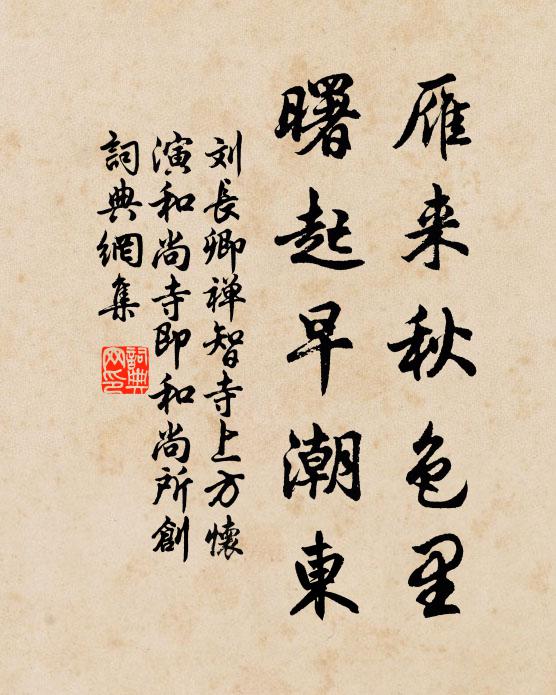 雁来秋色里
曙起早潮東
刘長卿禅智寺上方懐
演和尚寺即和尚所創
詞典網集
詞典
网印